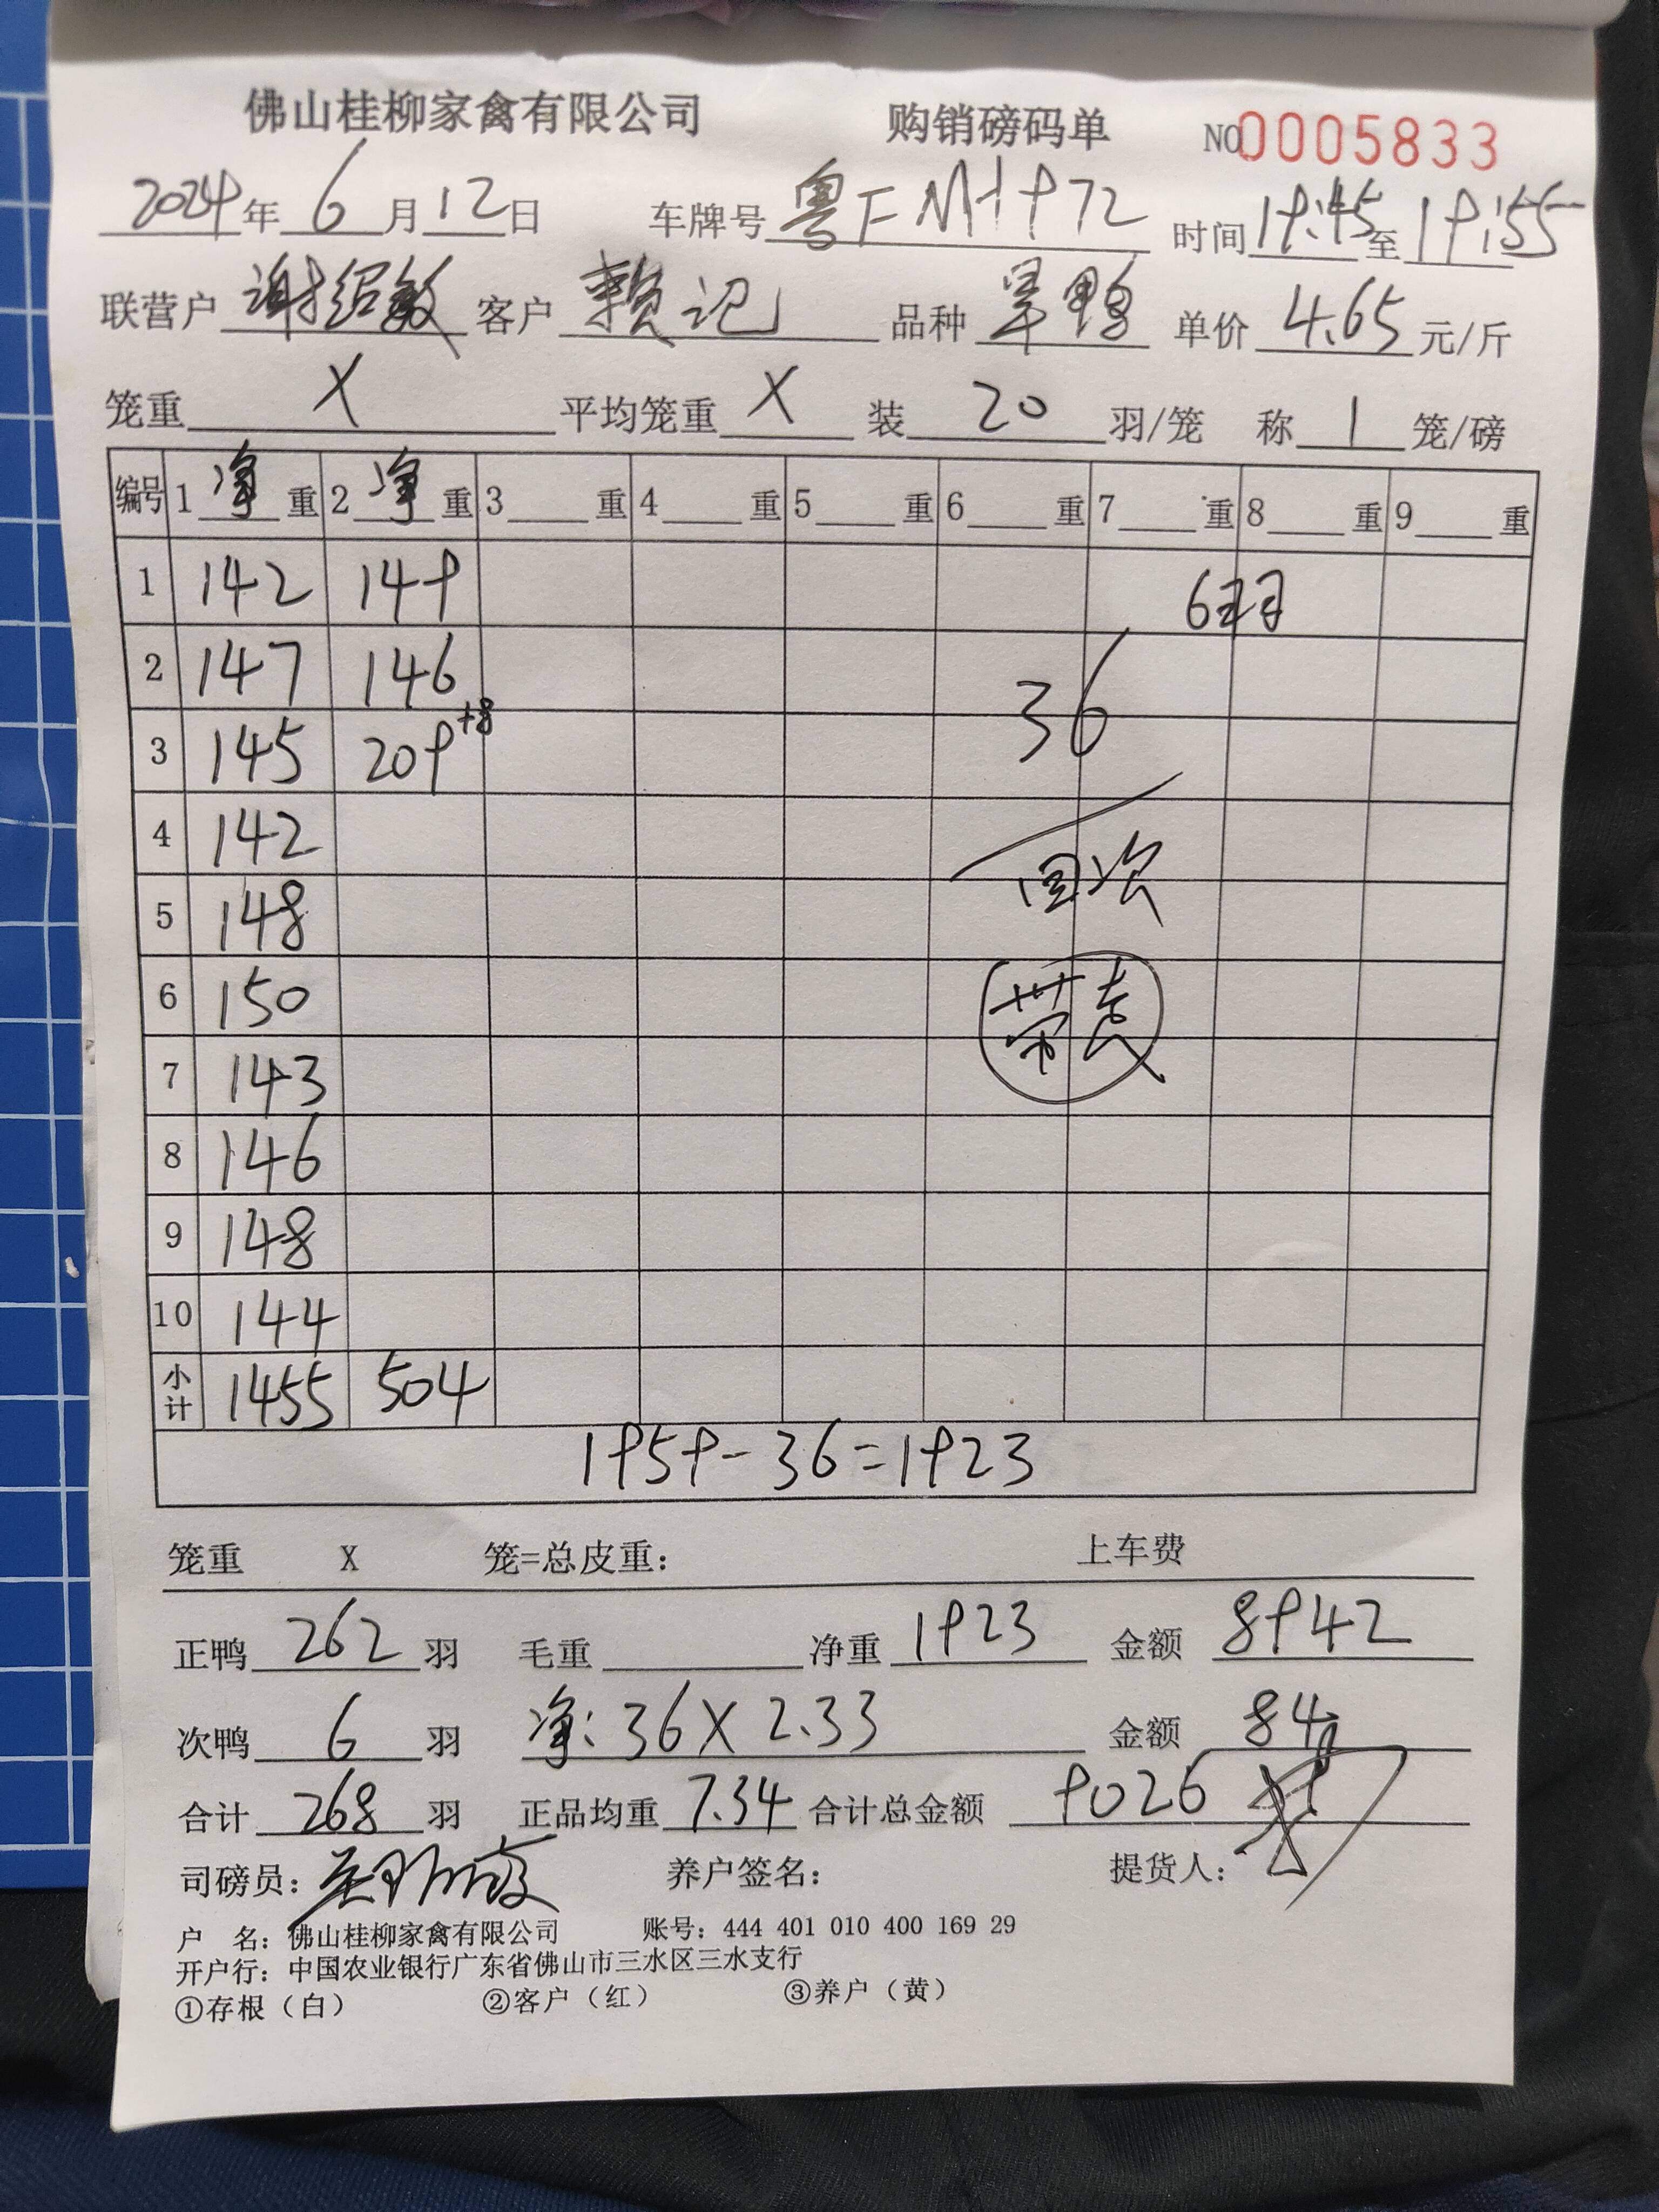 佛山桂柳家禽有限公司 购销磅码单 NO0005833
2024年6月12日 车牌号粤F 972 时间19:45至19:55
联营户谢绍敏 客户赖记 品种旱鸭 单价4.65元/斤
笼重X 平均笼重X 装20羽/笼 称1笼/磅
编号 1净重 2净重 3重 4重 5重 6重 7重 8重 9重
1 142 149 6羽
2 147 146 36
3 145 209+8
4 142 回次
5 148
6 150 带走
7 143
8 146
9 148
10 144
小计 1455 504
1959-36=1923
笼重 X 笼=总皮重: 上车费
正鸭262羽 毛重 净重1923 金额8942
次鸭6羽 净:36X2.33 金额84
合计268羽 正品均重7.34 合计总金额9026
司磅员: 养户签名: 提货人:
户 名: 佛山桂柳家禽有限公司 账号: 444 401 010 400 169 29
开户行: 中国农业银行广东省佛山市三水区三水支行
①存根(白) ②客户(红) ③养户(黄)